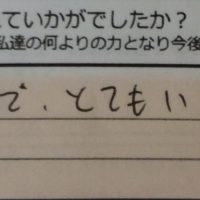 ていかがでしたか？
私達の何よりの力となり今後
で、とてもい